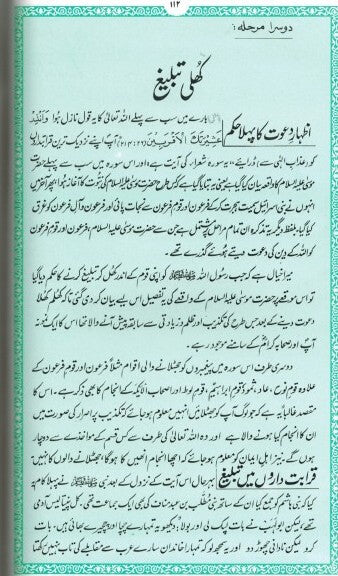 ۱۱۲
دوسرا مرحلہ:
کھلی تبلیغ
اظہارِ دعوت کا پہلا حکم اس بارے میں سب سے پہلے اللہ تعالیٰ کا یہ قول نازل ہوا وَأَنذِرْ
عَشِيرَتَكَ الْأَقْرَبِينَ (۲۶:۲۱۴) آپ اپنے نزدیک ترین قرابتداروں
کو (عذاب الٰہی سے) ڈرائیے، یہ سورۂ شعراء کی آیت ہے اور اس سورہ میں سب سے پہلے حضرت
موسیٰ علیہ السلام کا واقعہ بیان کیا گیا ہے یعنی یہ بتایا گیا ہے کہ کس طرح حضرت موسیٰ علیہ السلام کی نبوت کا آغاز ہوا، پھر آخر میں
انہوں نے بنی اسرائیل سمیت ہجرت کر کے فرعون اور قوم فرعون سے نجات پائی اور فرعون و آل فرعون کو غرق
کیا گیا، بلفظ دیگر یہ تذکرہ ان تمام مراحل پر مشتمل ہے جن سے حضرت موسیٰ علیہ السلام، فرعون اور قوم فرعون کو
اللہ کے دین کی دعوت دیتے ہوئے گذرے تھے۔
میرا خیال ہے کہ جب رسول اللہ ﷺ کو اپنی قوم کے اندر کھل کر تبلیغ کرنے کا حکم دیا گیا
تو اس موقعے پر حضرت موسیٰ علیہ السلام کے واقعے کی یہ تفصیل اس لیے بیان کر دی گئی تاکہ کھلم کھلا
دعوت دینے کے بعد جس طرح کی تکذیب اور ظلم و زیادتی سے سابقہ پیش آنے والا تھا اس کا ایک نمونہ
آپ اور صحابہ کرامؓ کے سامنے موجود رہے۔
دوسری طرف اس سورہ میں پیغمبروں کو جھٹلانے والی اقوام مثلاً فرعون اور قوم فرعون کے
علاوہ قوم نوح، عاد، ثمود، قوم ابراہیم، قوم لوط اور اصحاب الأیکہ کے انجام کا بھی ذکر ہے۔ اس کا
مقصد غالباً یہ ہے کہ جو لوگ آپ کو جھٹلائیں انہیں معلوم ہو جائے کہ تکذیب پر اصرار کی صورت میں
ان کا انجام کیا ہونے والا ہے اور وہ اللہ تعالیٰ کی طرف سے کس قسم کے مواخذے سے دوچار
ہوں گے۔ نیز اہل ایمان کو معلوم ہو جائے کہ اچھا انجام انھیں کا ہوگا، جھٹلانے والوں کا نہیں۔
قرابت داروں میں تبلیغ بہرحال اس آیت کے نزول کے بعد نبی ﷺ نے پہلا کام یہ
کیا کہ بنی ہاشم کو جمع کیا ان کے ساتھ بنی مطلب بن عبد مناف کی بھی ایک جماعت تھی۔ کل پینتالیس آدمی
تھے، لیکن ابولہب نے بات لپک لی اور بولا: دیکھو یہ تمہارے چچا اور چچیرے بھائی ہیں۔ بات
کرو لیکن نادانی چھوڑ دو اور یہ سمجھ لو کہ تمہارا خاندان سارے عرب سے مقابلے کی تاب نہیں رکھتا